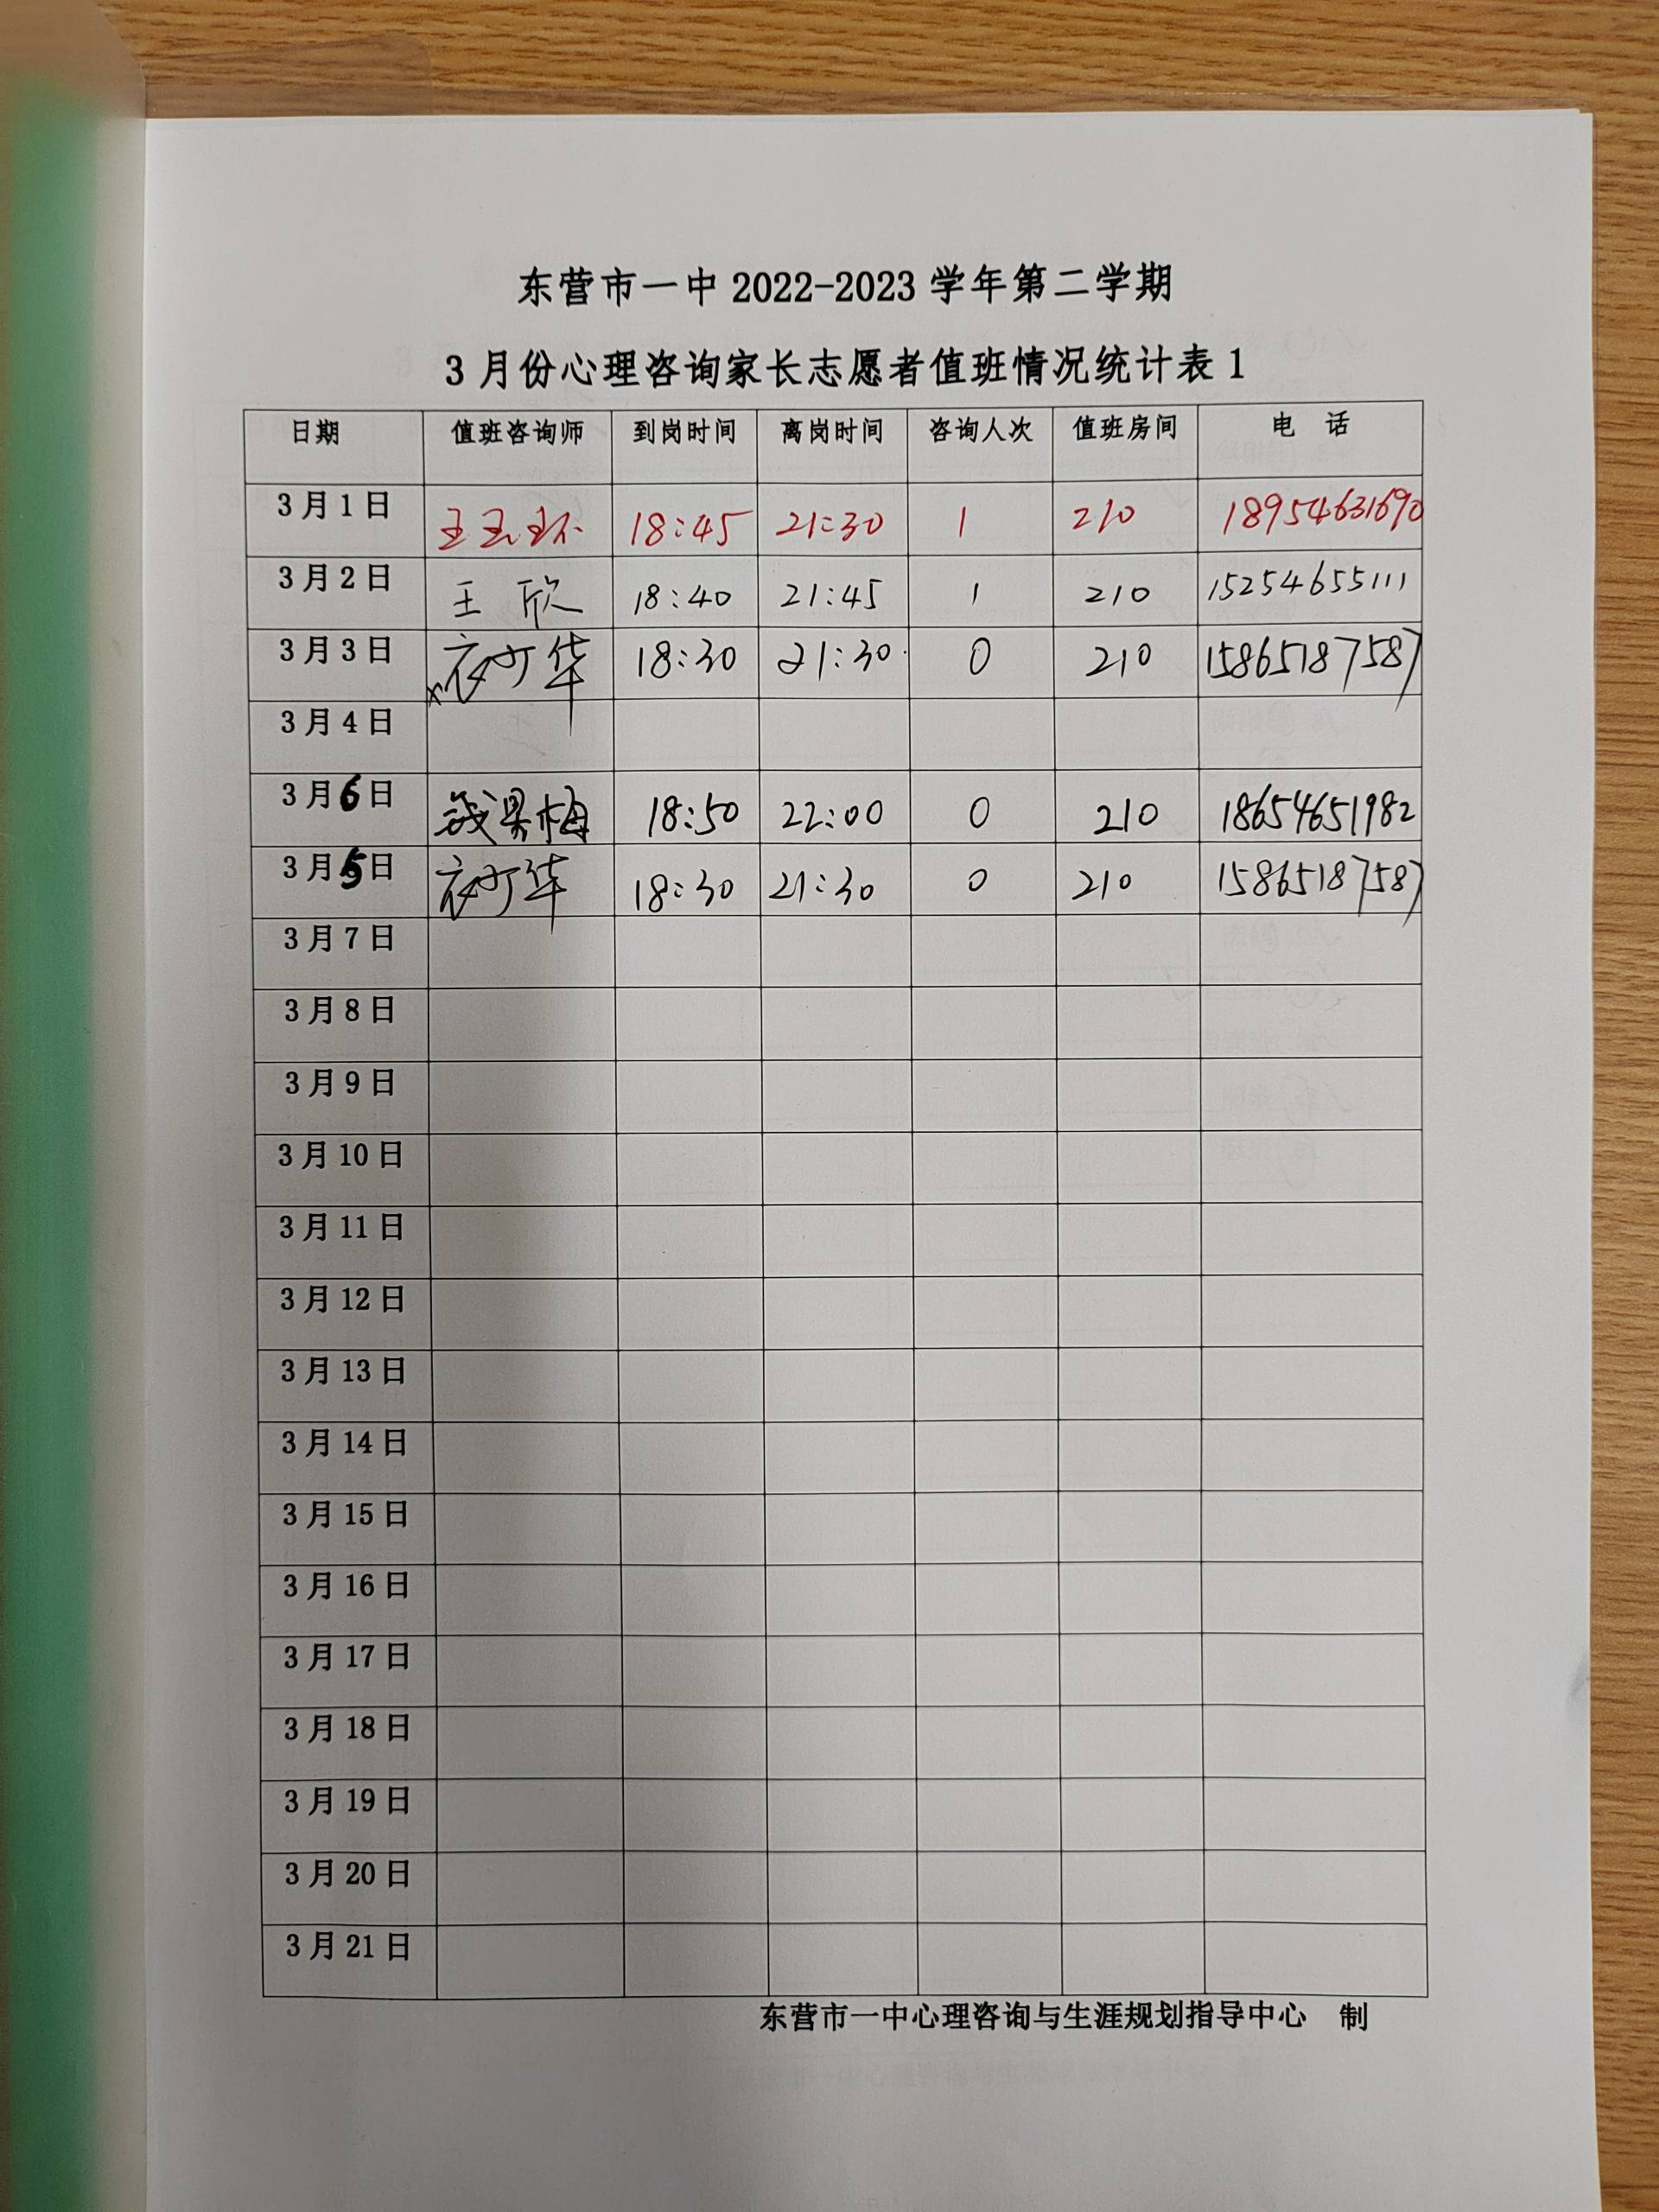 东营市一中 2022-2023 学年第二学期
3 月份心理咨询家长志愿者值班情况统计表 1
日期 值班咨询师 到岗时间 离岗时间 咨询人次 值班房间 电 话
3 月 1 日 王玉环 18:45 21:30 1 210 18954631690
3 月 2 日 王 欣 18:40 21:45 1 210 15254655111
3 月 3 日 华 18:30 21:30 0 210 15865187587
3 月 4 日
3 月 6 日 梅 18:50 22:00 0 210 18654651982
3 月 5 日 华 18:30 21:30 0 210 15865187587
3 月 7 日
3 月 8 日
3 月 9 日
3 月 10 日
3 月 11 日
3 月 12 日
3 月 13 日
3 月 14 日
3 月 15 日
3 月 16 日
3 月 17 日
3 月 18 日
3 月 19 日
3 月 20 日
3 月 21 日
东营市一中心理咨询与生涯规划指导中心 制